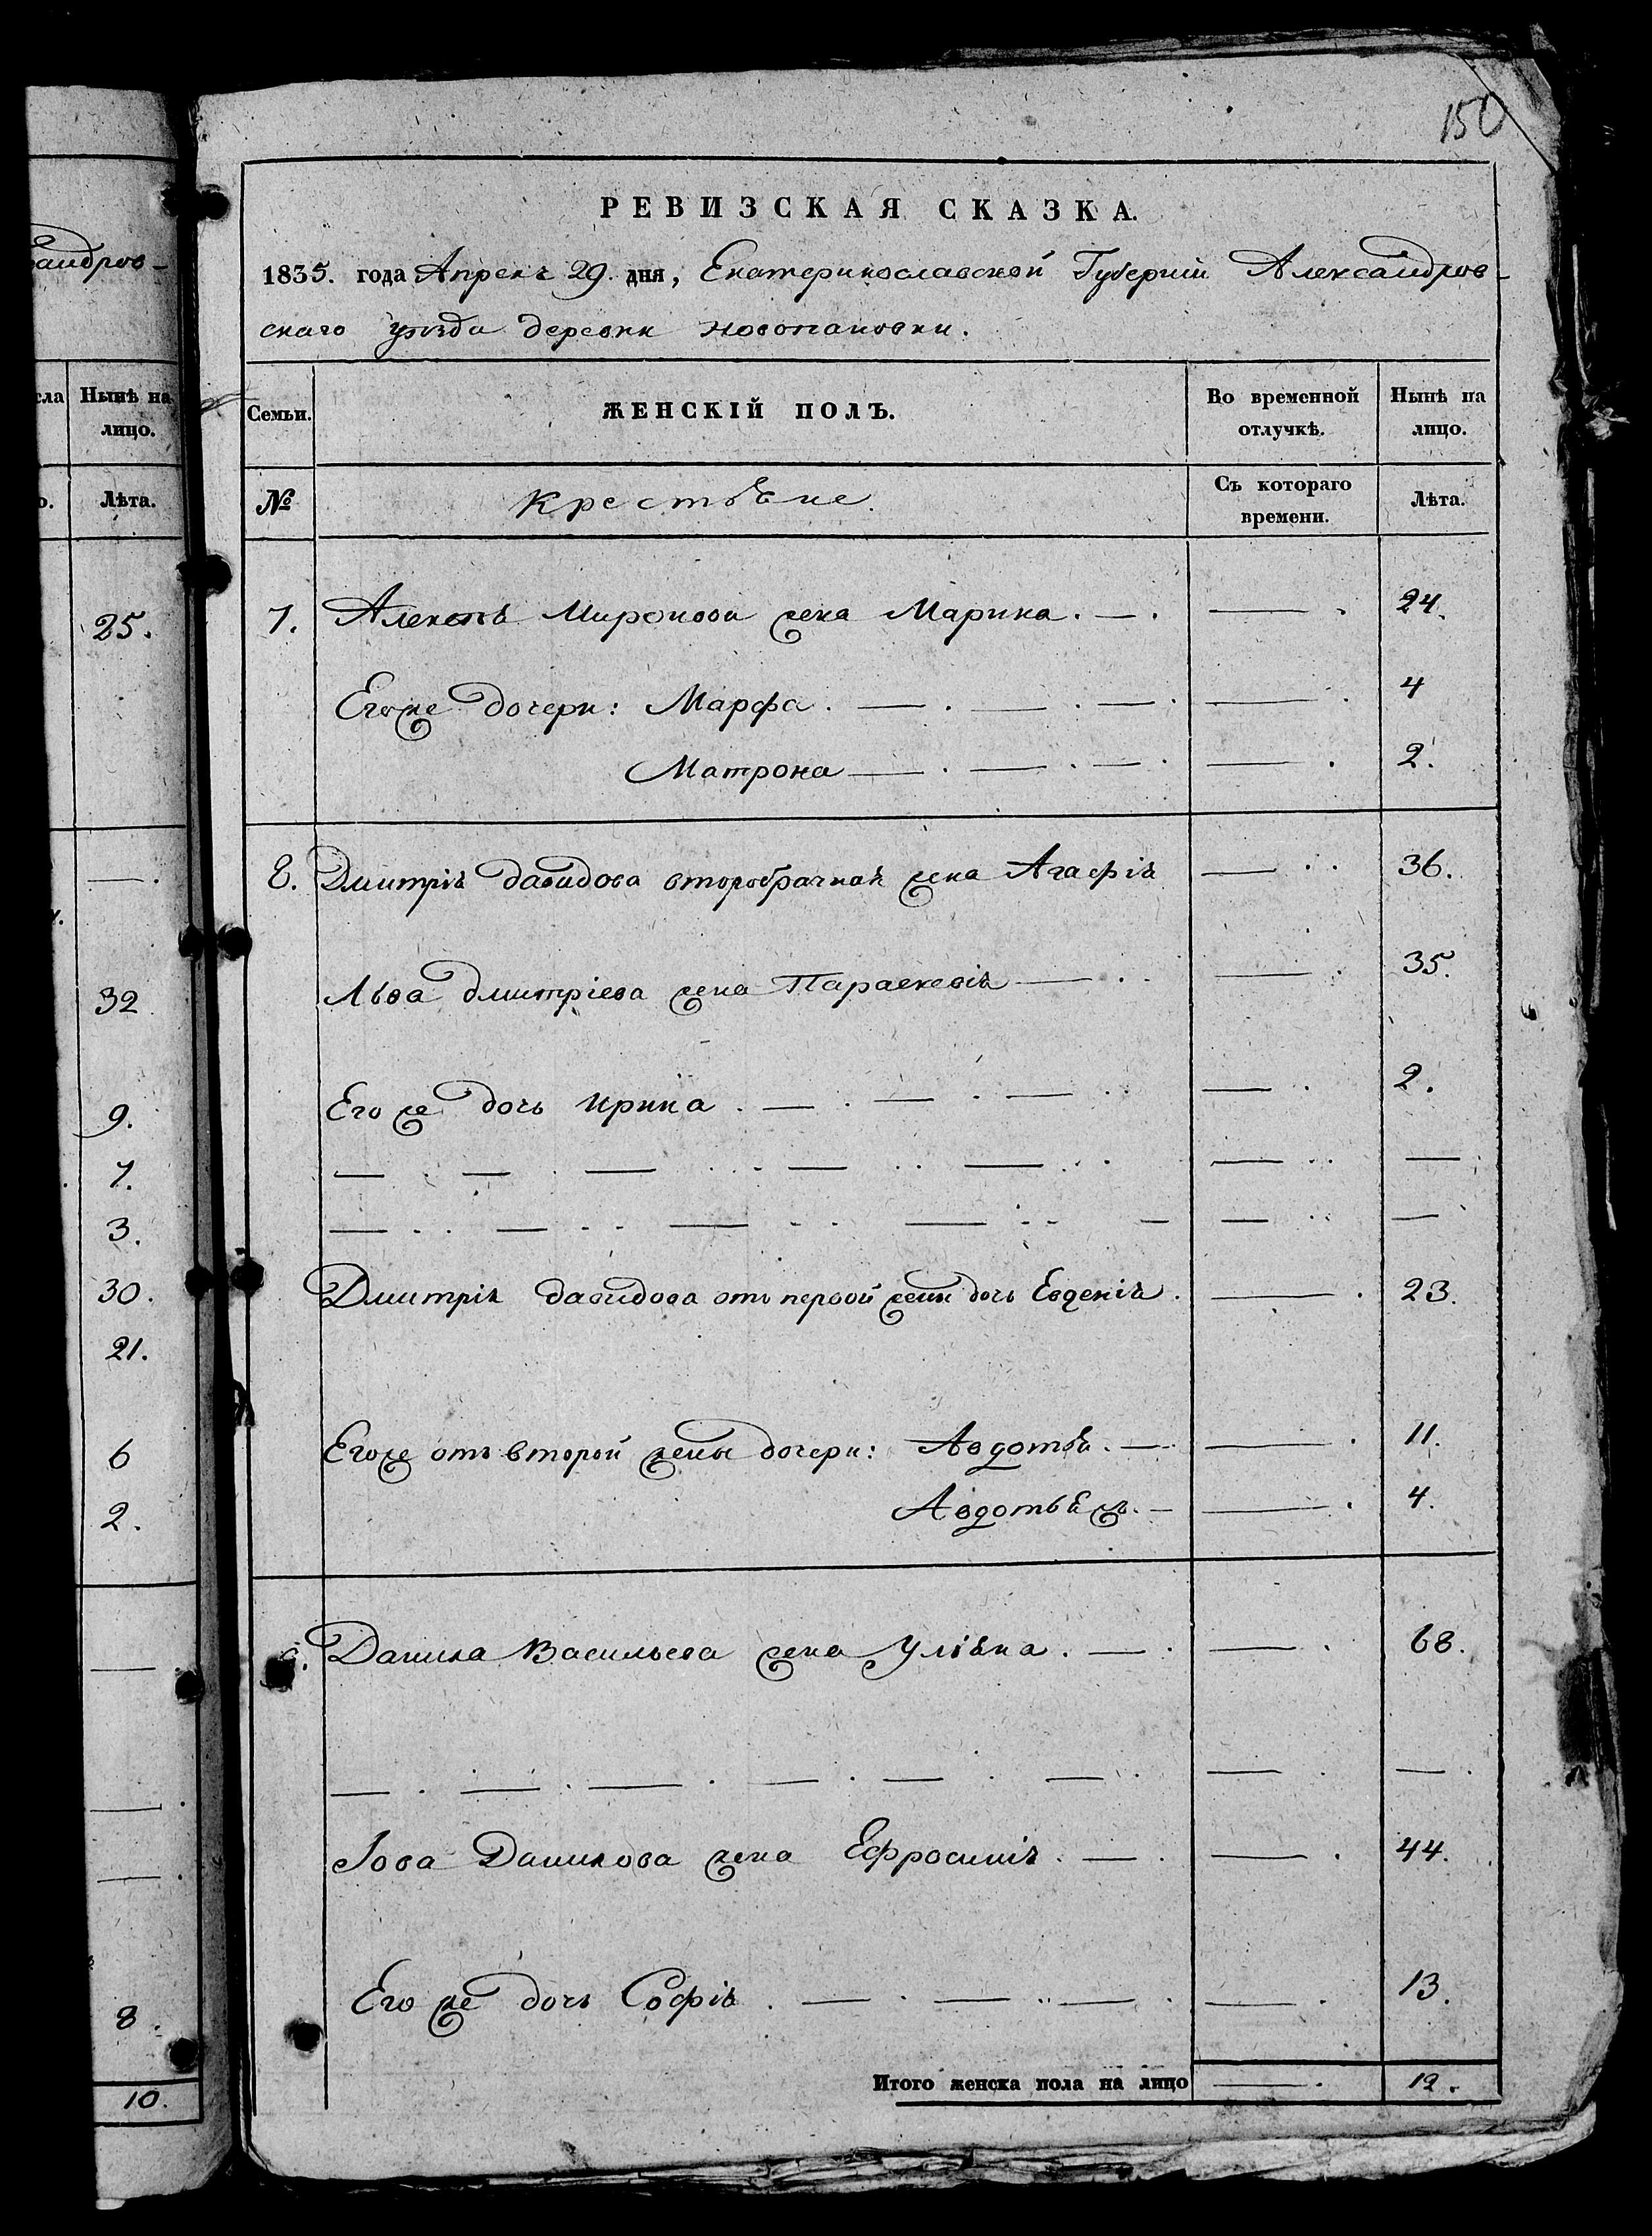 150
андров-
сла Нынѣ на
лицо.
о. Лѣта.
25.
32
9.
7.
3.
30.
21.
6
2.
8.
10.
РЕВИЗСКАЯ СКАЗКА.
1835. года Апреля 29. дня, Екатеринославской Губерніи Александров-
скаго уѣзда деревни Новопановки.
Семьи. ЖЕНСКІЙ ПОЛЪ. Во временной отлучкѣ. Нынѣ на лицо.
№ Крестьяне. Съ котораго времени. Лѣта.
7. Алексѣя Миронова жена Марина. — . — . 24.
Егоже дочери: Марфа. — . — . — . — . 4
Матрона — . — . — . — . 2.
8. Дмитрія Давидова второбрачная жена Агафія — . . 36.
Льва Дмитріева жена Параскевія — . . — . 35.
Его же дочь Ирина . — . — . — . . — . 2.
— . — . — . . . — . . — . . . — . . —
— . . — . . — . . — . . — — . . —
Дмитрія Давидова отъ первой жены дочь Евгенія. — . 23.
Егоже отъ второй жены дочери: Авдотья. — . — . 11.
Авдотья жъ. — — . 4.
Данила Васильева жена Уліяна. — . — . 68.
— . — . — . — . — . — . — . — .
Іова Данилова жена Ефросинія. — . — . 44.
Его же дочь Софія . — . — . . — . — . 13.
Итого женска пола на лицо — . 12.